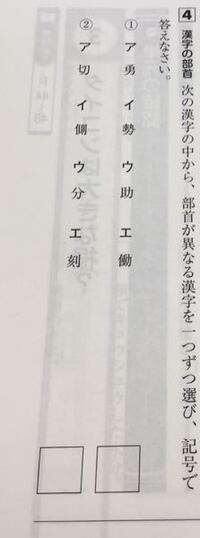 4 漢字の部首 次の漢字の中から、部首が異なる漢字を一つずつ選び、記号で
答えなさい。
① ア 勇 イ 勢 ウ 助 エ 働
② ア 切 イ 側 ウ 分 エ 刻